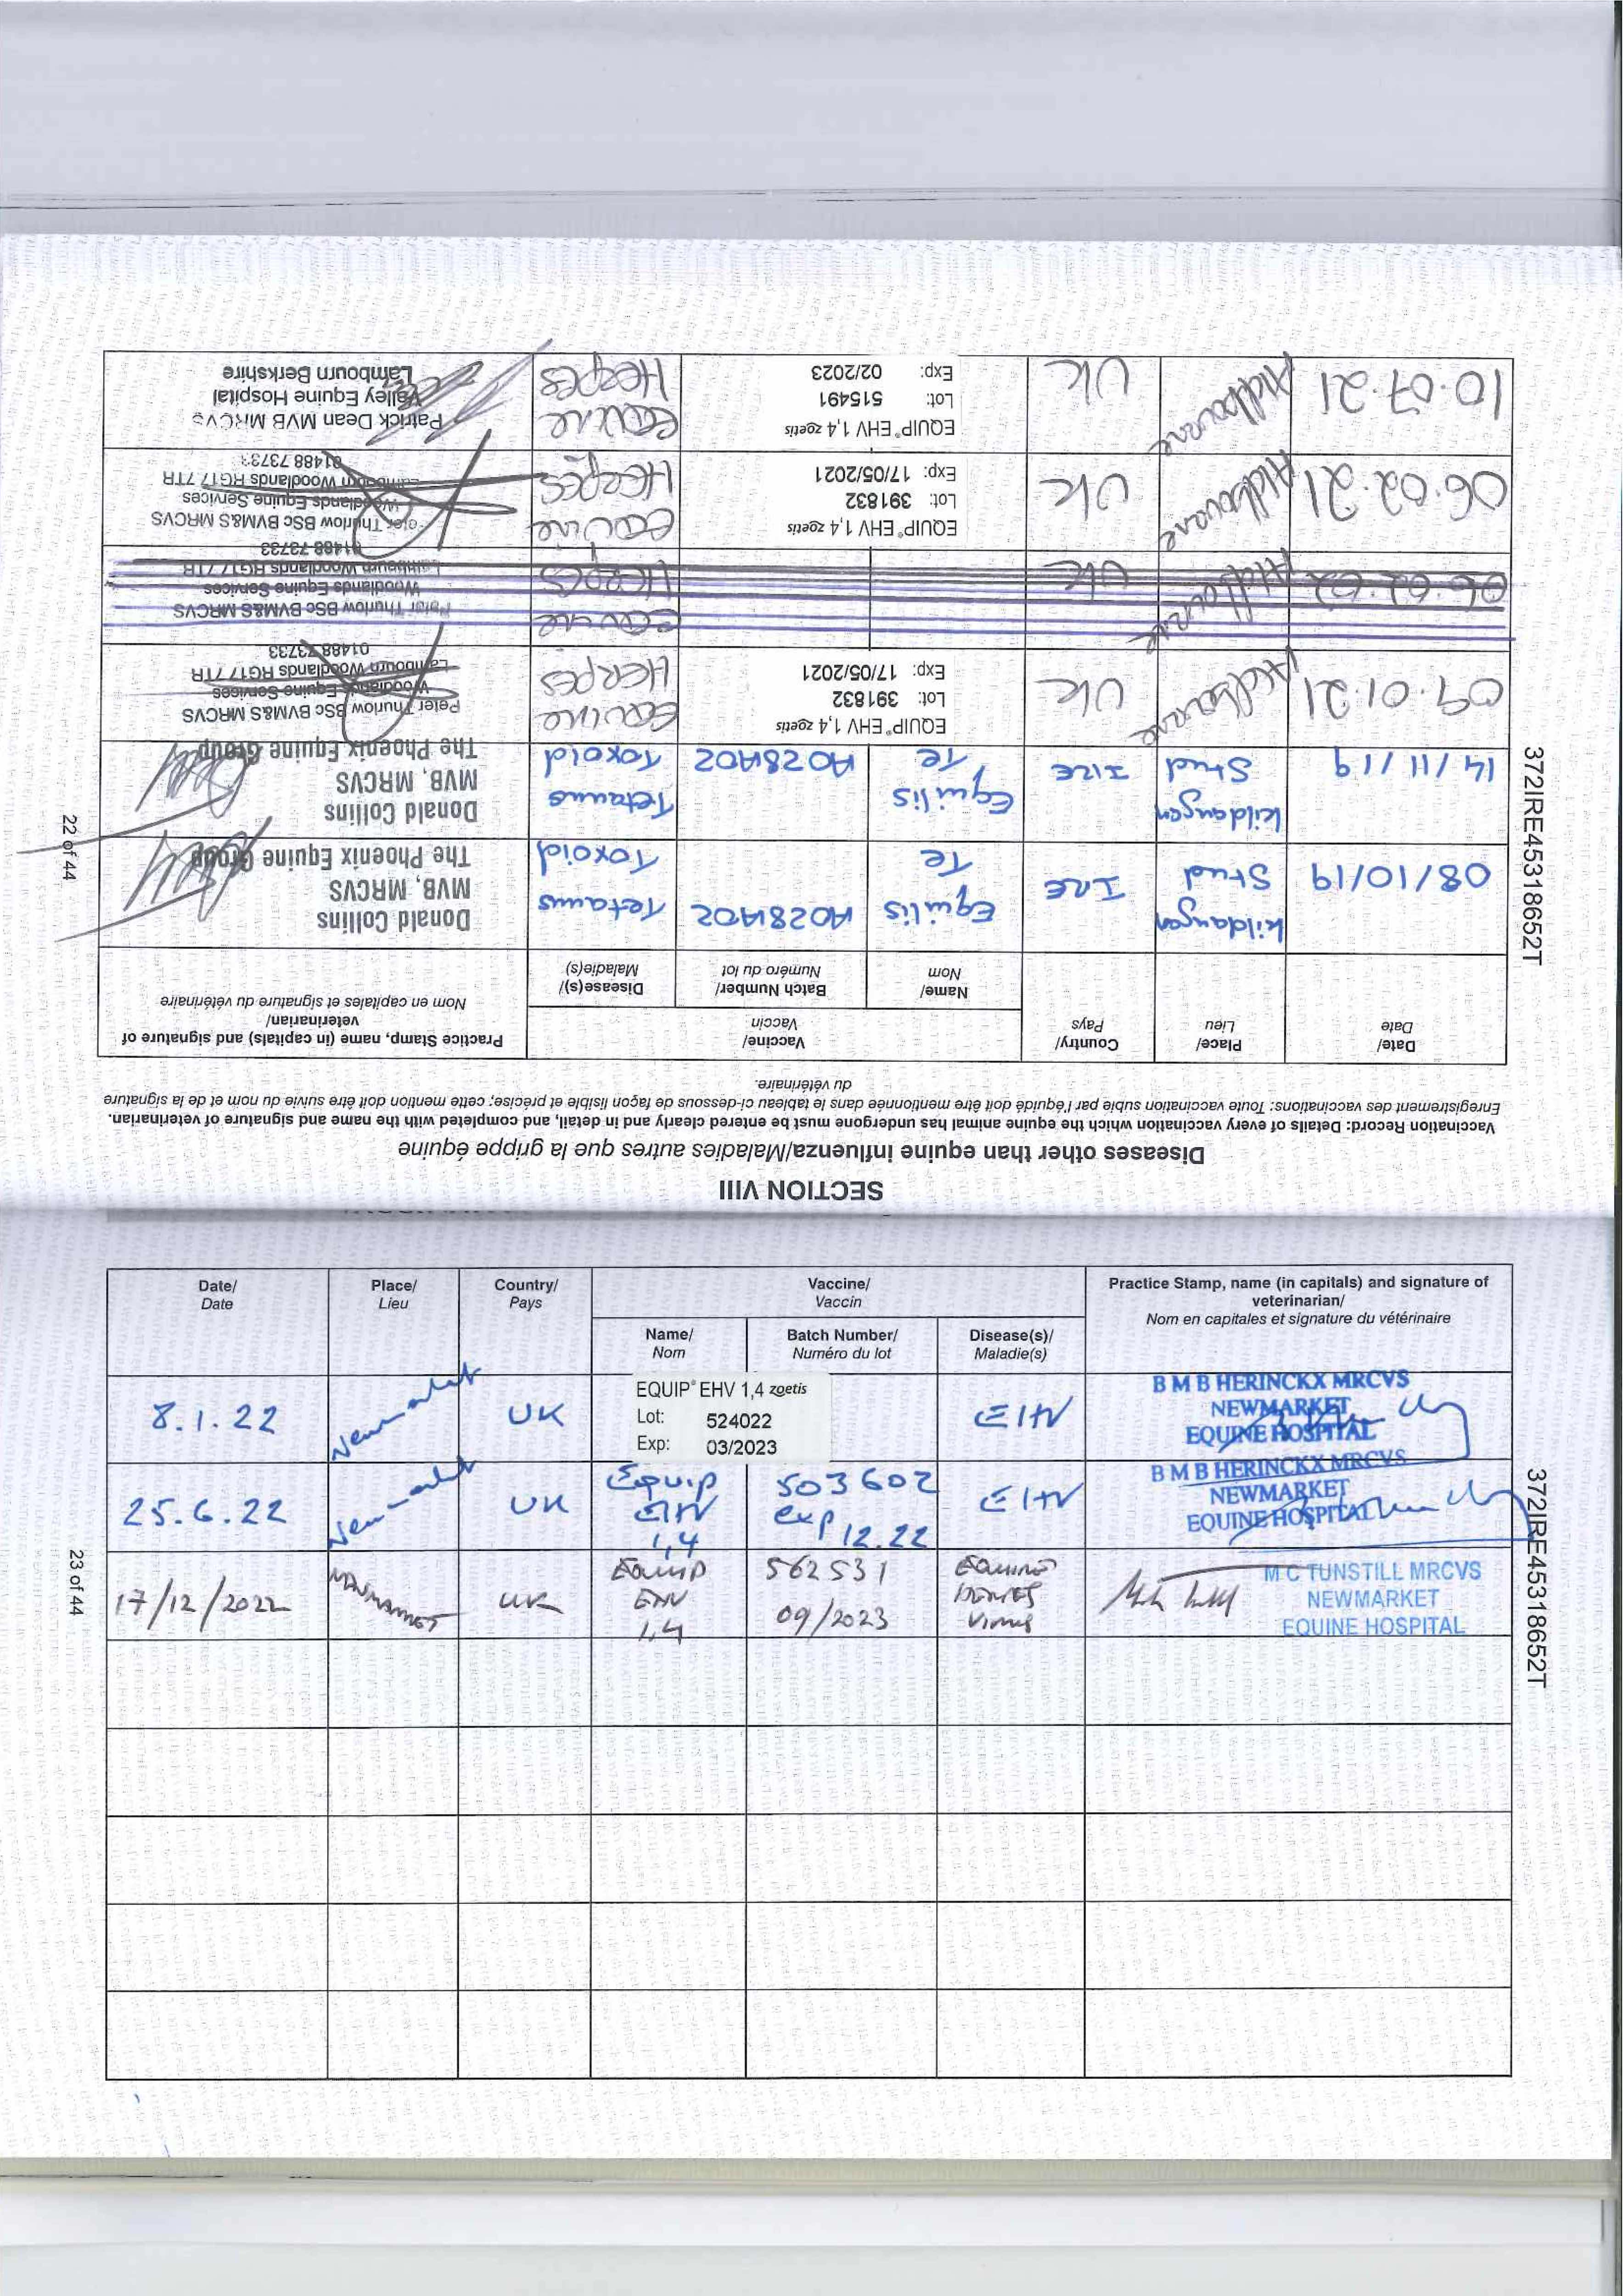 SECTION VIII
Diseases other than equine influenza/Maladies autres que la grippe équine
Vaccination Record: Details of every vaccination which the equine animal has undergone must be entered clearly and in detail, and completed with the name and signature of veterinarian.
Enregistrement des vaccinations: Toute vaccination subie par l'équidé doit être mentionnée dans le tableau ci-dessous de façon lisible et précise; cette mention doit être suivie du nom et de la signature
du vétérinaire.
Date/ Place/ Country/ Vaccine/ Practice Stamp, name (in capitals) and signature of
Date Lieu Pays Vaccin veterinarian/
Nom en capitales et signature du vétérinaire
Name/ Batch Number/ Disease(s)/
Nom Numéro du lot Maladie(s)
08/10/19 Kildangan Stud IRE Equilis Te A028A02 Tetanus Toxoid
Donald Collins
MVB, MRCVS
The Phoenix Equine Group
14/11/19 Kildangan Stud IRE Equilis Te A028A02 Tetanus Toxoid
Donald Collins
MVB, MRCVS
The Phoenix Equine Group
09.01.21 Aldbourne UK EQUINE HERPES
EQUIP® EHV 1,4 zoetis
Lot: 391832
Exp: 17/05/2021
Peter Thurlow BSc BVM&S MRCVS
Woodlands Equine Services
Lambourn Woodlands RG17 7TR
01488 73733
06.02.02 Aldbourne UK EQUINE HERPES
Peter Thurlow BSc BVM&S MRCVS
Woodlands Equine Services
Lambourn Woodlands RG17 7TR
01488 73733
06.02.21 Aldbourne UK EQUINE HERPES
EQUIP® EHV 1,4 zoetis
Lot: 391832
Exp: 17/05/2021
Peter Thurlow BSc BVM&S MRCVS
Woodlands Equine Services
Lambourn Woodlands RG17 7TR
01488 73733
10.07.21 Aldbourne UK EQUINE HERPES
EQUIP® EHV 1,4 zoetis
Lot: 515491
Exp: 02/2023
Patrick Dean MVB MRCVS
Valley Equine Hospital
Lambourn Berkshire
372IRE45318652T
22 of 44
Date/ Place/ Country/ Vaccine/ Practice Stamp, name (in capitals) and signature of
Date Lieu Pays Vaccin veterinarian/
Nom en capitales et signature du vétérinaire
Name/ Batch Number/ Disease(s)/
Nom Numéro du lot Maladie(s)
8.1.22 Newmarket UK EHV
EQUIP® EHV 1,4 zoetis
Lot: 524022
Exp: 03/2023
B M B HERINCKX MRCVS
NEWMARKET
EQUINE HOSPITAL
25.6.22 Newmarket UK Equip EHV 1,4 503602 exp 12.22 EHV
B M B HERINCKX MRCVS
NEWMARKET
EQUINE HOSPITAL
17/12/2022 NEWMARKET UK EQUIP EHV 1,4 562531 09/2023 EQUINE HERPES VIRUS
M C TUNSTILL MRCVS
NEWMARKET
EQUINE HOSPITAL
372IRE45318652T
23 of 44